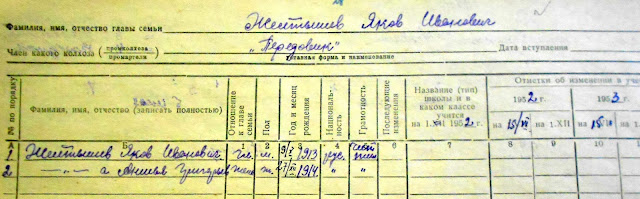 Фамилия, имя, отчество главы семьи Желтышев Яков Иванович
Член какого колхоза (промколхоза промартели) „Передовик" Дата вступления
уставная форма и наименование
№№ по порядку Фамилия, имя, отчество (записать полностью) Отношение к главе семьи Пол Год и месяц рождения Националь-ность Грамотность Последующие изменения Название (тип) школы и в каком классе учится на 1.XII 1952 г. Отметки об изменении в
1952 г. 1953 г.
на 15/VI на 1.XII на 15/VI на 1.XII
А Б 1 2 3 4 5 6 7 8 9 10 11
1 Желтышев Яков Иванович гл. м. 1913 рус.
2 —„— а Григорьев жена ж. 1914 „ „